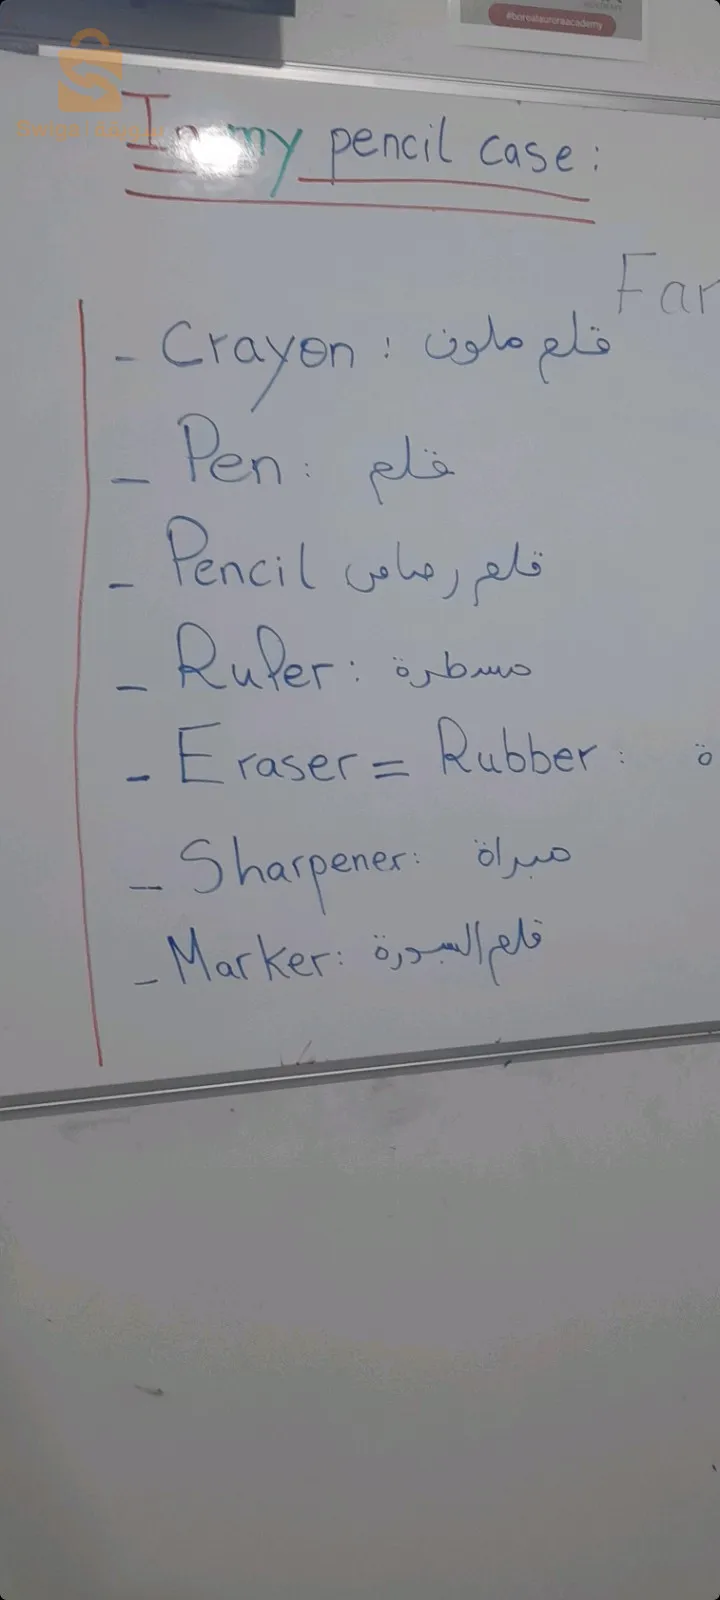 #borealauroraacademy
In my pencil case:
Far
- Crayon : قلم ملون
- Pen : قلم
- Pencil قلم رصاص
- Ruler : مسطرة
- Eraser = Rubber : ة
- Sharpener: مبراة
- Marker: قلم السبورة